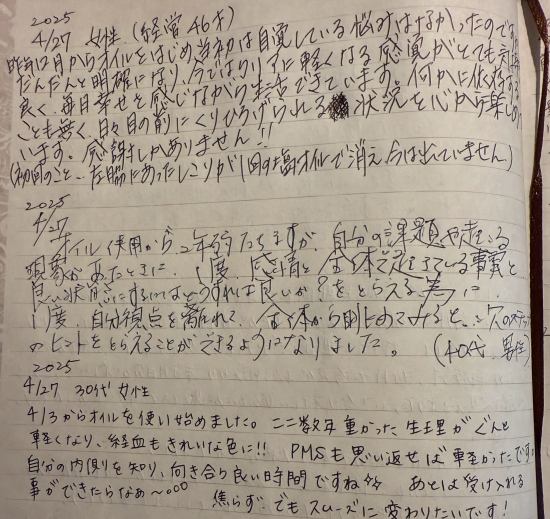 2025
4/27 女性 (経営 46才)
昨年12月からオイルをはじめ当初は自覚している悩みはなかったのですが
だんだんと明確になり、今ではクリアに軽くなる感覚がとても
良く、毎日幸せを感じながら生活できています。何かに依存する
ことも無く、日々目の前にくりひろげられる 状況を心から楽しめて
います。感謝しかありません!!
(初回のこと、左脇にあったしこりが1回の塩オイルで消え、今は出ていません。)
2025
4/27
オイル使用から、2年弱たちますが、自分の課題や起こる
現象があたときに、1度、感情と 全体で起きている事実と
良い状態にするにはどうすれば良いか?をとらえる為に
1度、自分視点を離れて、全体から眺めてみると、次のステップ
のヒントをとらえることができるようになりました。 (40代 男性)
2025
4/27 30代 女性
4/3からオイルを使い始めました。ここ数年重かった生理がぐんと
軽くなり、経血もきれいな色に!! PMSも思い返せば軽かったです。
自分の内側を知り、向き合う良い時間ですね☆☆ あとは受け入れる
事ができたらなぁ〜。。。 焦らず でもスムーズに変わりたいです!